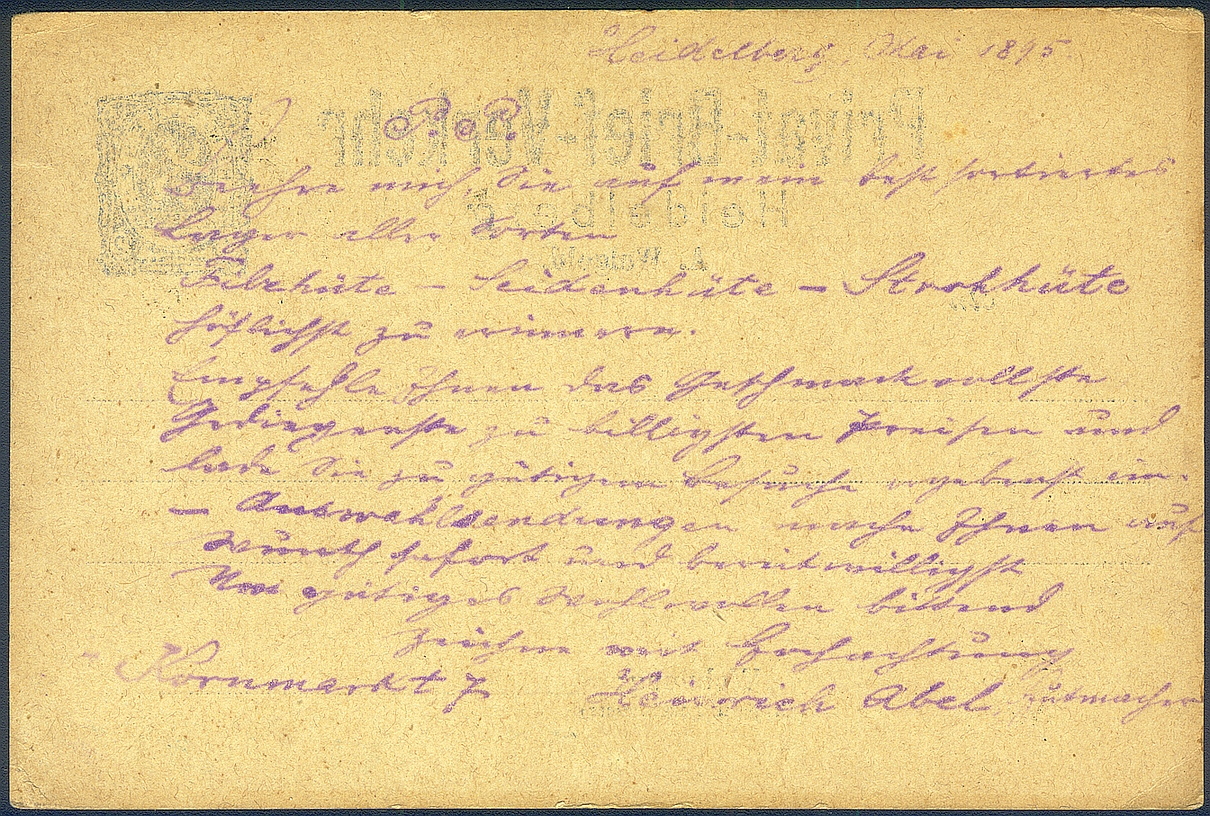 Heidelberg, Mai 1895.
P. P.
Beehre mich, Sie auf mein best sortiertes
Lager aller Sorten
Filzhüte – Seidenhüte – Strohhüte
höflichst zu erinnern.
Empfehle Ihnen das Geschmackvollste
Gediegenste zu billigsten Preisen und
lade Sie zu gütigem Besuche ergebenst ein.
– Auswahlsendungen mache Ihnen auf
Wunsch sofort und bereitwilligst
Um gütiges Wohlwollen bittend
zeichne mit Hochachtung
Kornmarkt 7 Heinrich Abel, Hutmacher
Privat-Brief-Verkehr
Heidelberg